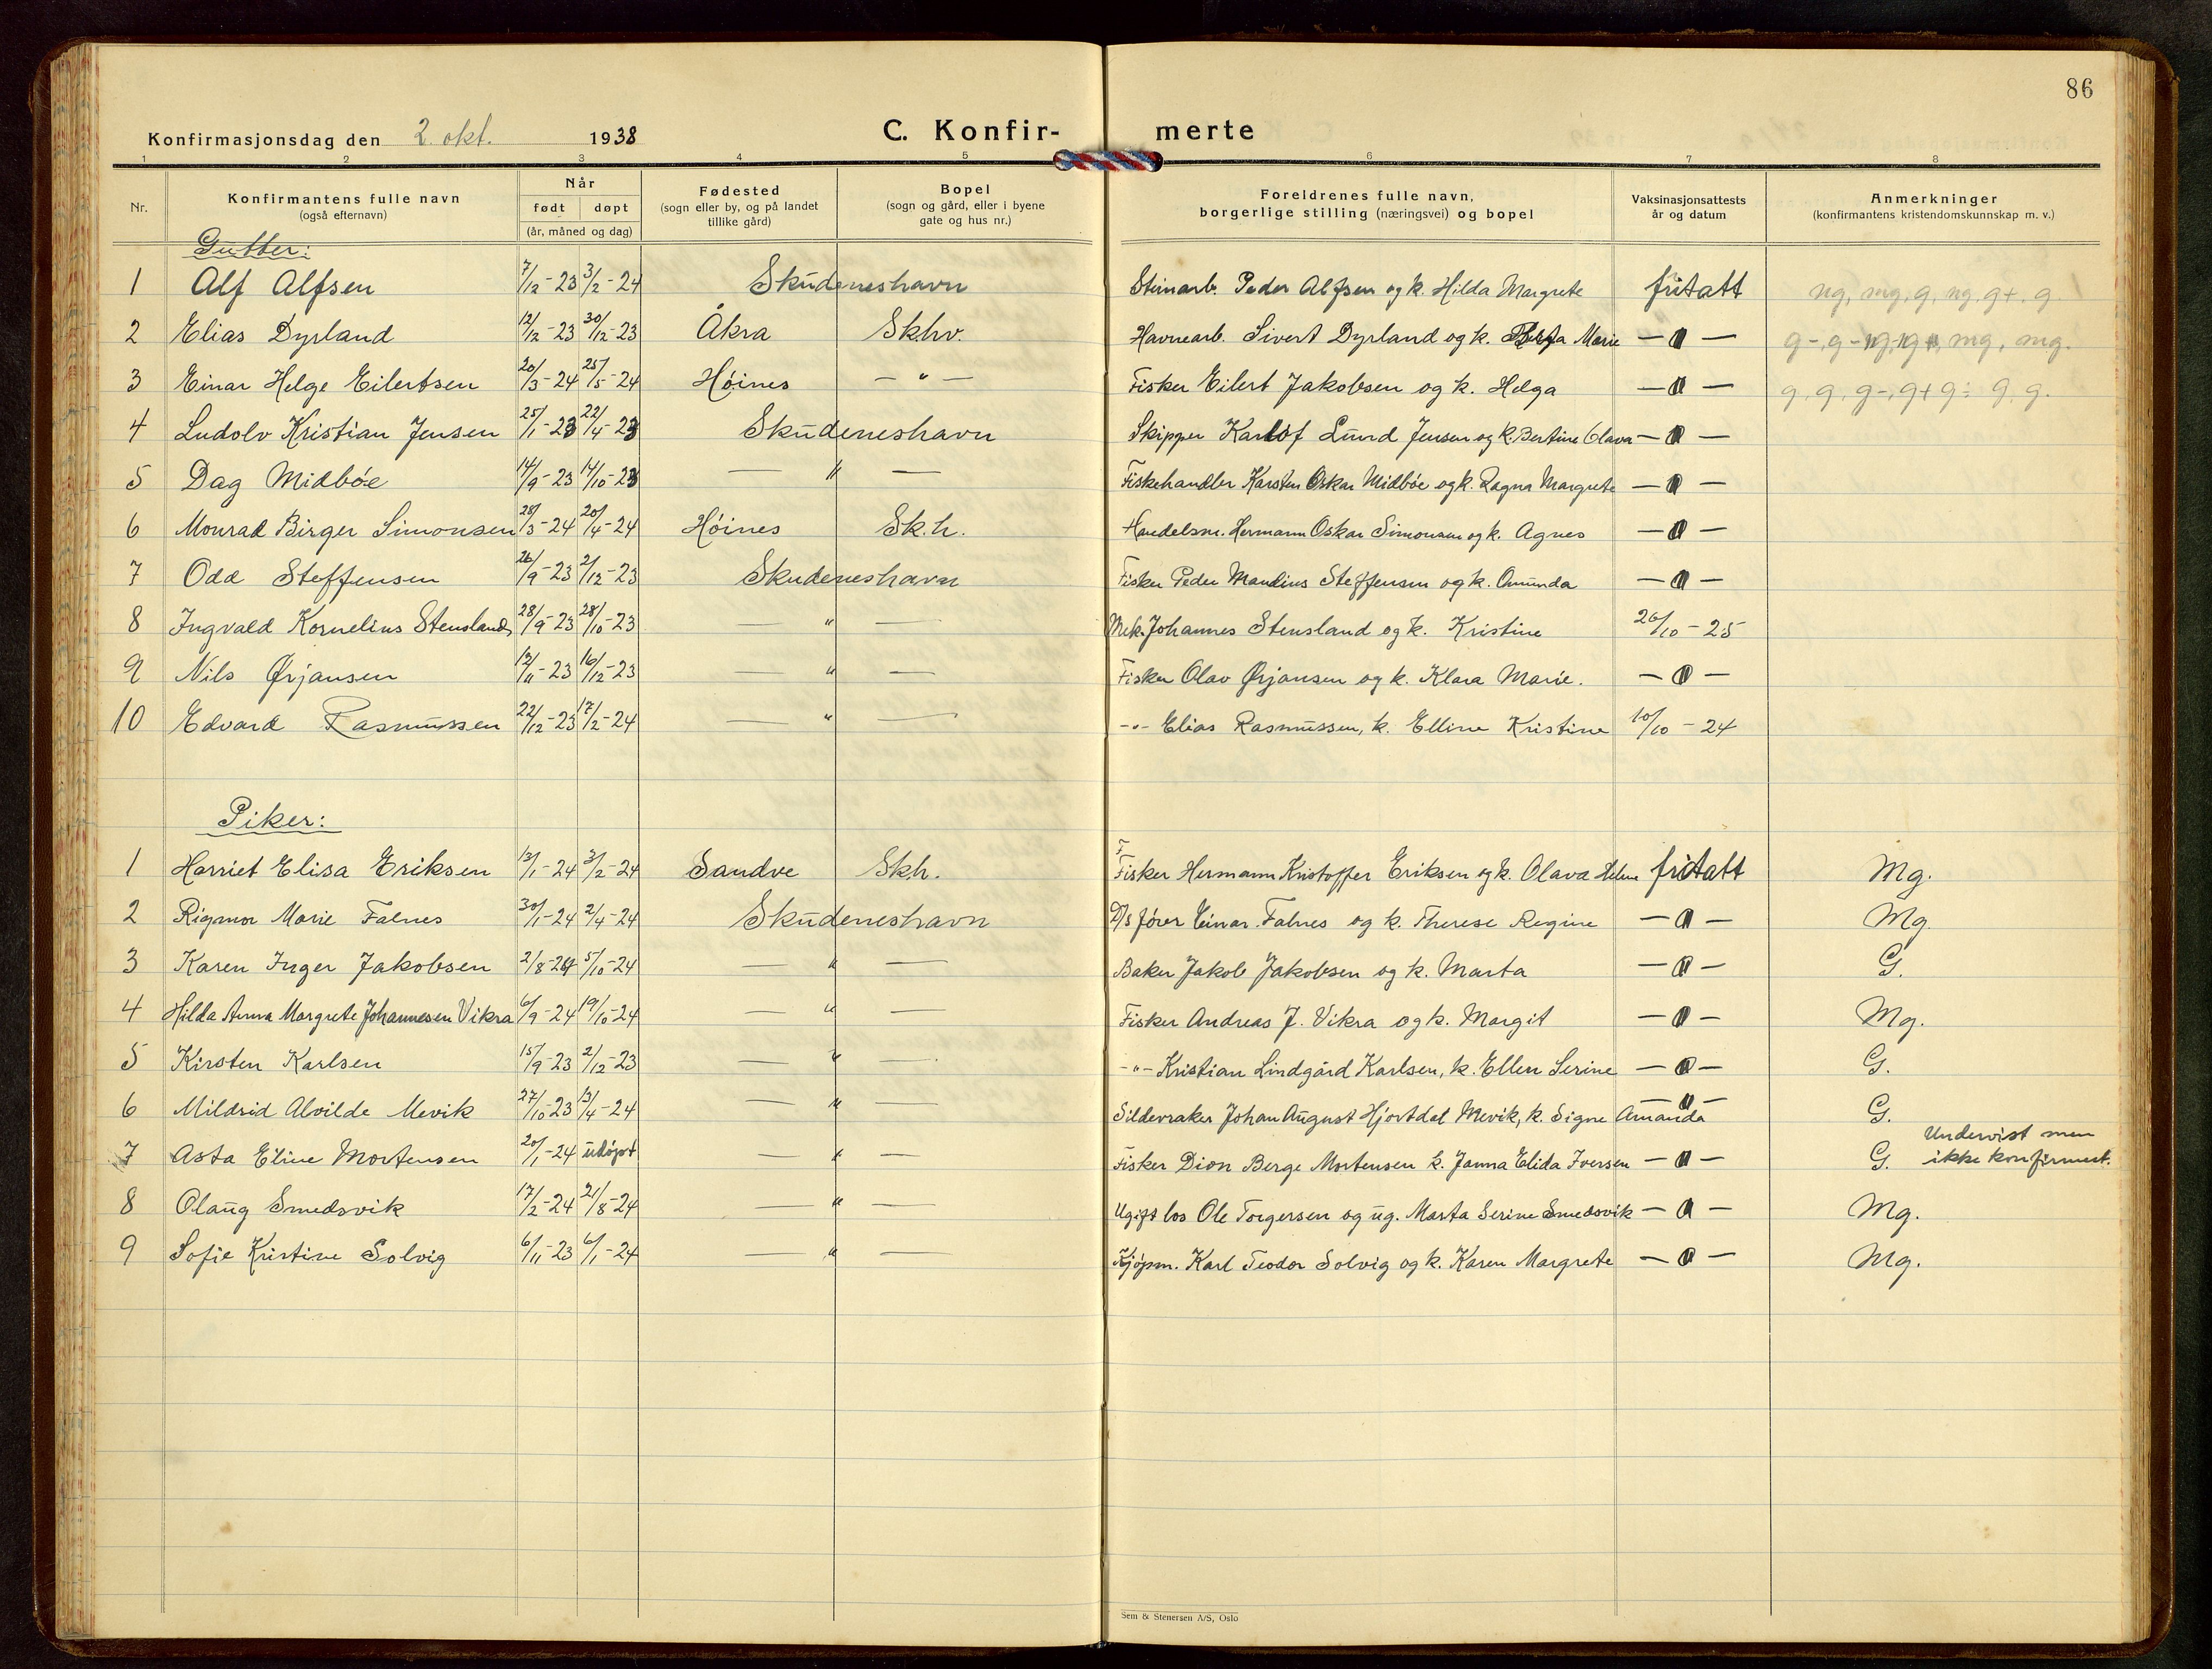 86
Konfirmasjonsdag den 2. okt. 1938 C. Konfir- merte
1 2 3 4 5 6 7 8
Nr. Konfirmantens fulle navn (også efternavn) Når født døpt (år, måned og dag) Fødested (sogn eller by, og på landet tillike gård) Bopel (sogn og gård, eller i byene gate og hus nr.) Foreldrenes fulle navn, borgerlige stilling (næringsvei) og bopel Vaksinasjonsattests år og datum Anmerkninger (konfirmantens kristendomskunnskap m. v.)
Gutter:
1 Alf Alfsen 7/12-23 3/2-24 Skudeneshavn Steinarb. Peder Alfsen og k. Hilda Margrete fritatt ng, mg, g, ng, g+, g.
2 Elias Dyrland 12/12-23 30/12-23 Åkra Skhv. Havnearb. Sivert Dyrland og k. Marie — " —
3 Einar Helge Eilertsen 20/3-24 25/5-24 Høines — " — Fisker Eilert Jakobsen og k. Helga — " — g, g, g-, g+ g÷ g, g.
4 Ludolv Kristian Jensen 25/1-23 22/4-23 Skudeneshavn Skipper Karlof Lund Jensen og k. Bertine Olava — " —
5 Dag Midbøe 14/9-23 14/10-23 — " — Fiskehandler Karsten Oskar Midbøe og k. Ragna Margrete — " —
6 Monrad Birger Simonsen 28/3-24 20/4-24 Høines Sk.h. Handelsm. Hermann Oskar Simonsen og k. Agnes — " —
7 Odd Steffensen 26/9-23 2/12-23 Skudeneshavn Fisker Peder Mandius Steffensen og k. Omunda — " —
8 Ingvald Kornelius Stensland 28/9-23 28/10-23 — " — Mek. Johannes Stensland og k. Kristine 26/10-25
9 Nils Ørjansen 12/11-23 16/12-23 — " — Fisker Olav Ørjansen og k. Klara Marie. — " —
10 Edvard Rasmussen 22/12-23 17/2-24 — " — -"- Elias Rasmussen, k. Elline Kristine 10/10-24
Piker:
1 Harriet Elisa Eriksen 13/1-24 3/2-24 Sandve Skh. Fisker Hermann Kristoffer Eriksen og k. Olava Helene fritatt Mg.
2 Rigmor Marie Falnes 30/1-24 2/4-24 Skudeneshavn D/s fører Einar Falnes og k. Therese Regine — " — Mg.
3 Karen Inger Jakobsen 2/8-24 5/10-24 — " — Baker Jakob Jakobsen og k. Marta — " — G.
4 Hilda Anna Margrete Johannesen Vikra 6/9-24 19/10-24 — " — Fisker Andreas J. Vikra og k. Margit — " — Mg.
5 Kirsten Karlsen 15/9-23 2/12-23 — " — -"- Kristian Lindgård Karlsen, k. Ellen Serine — " — G.
6 Mildrid Alvilde Mevik 27/10-23 13/4-24 — " — Sildevraker Johan August Hjortdal Mevik, k. Signe Amanda — " — G.
7 Asta Eline Mortensen 20/1-24 udøpt — " — Fisker Dion Berge Mortensen k. Janna Elida Iversen — " — G. Undervist men ikke konfirmert.
8 Olaug Smedsvik 17/2-24 21/8-24 — " — Ugift los Ole Torgersen og ug. Marta Serine Smedsvik — " — Mg.
9 Sofie Kristine Solvig 6/11-23 6/1-24 — " — Kjøpm. Karl Teodor Solvig og k. Karen Margrete — " — Mg.
Sem & Stenersen A/S, Oslo